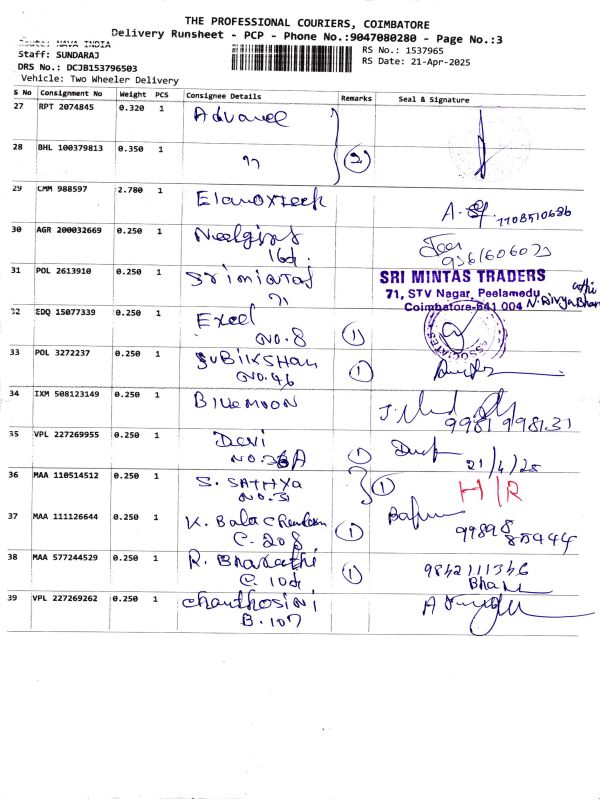 THE PROFESSIONAL COURIERS, COIMBATORE
Delivery Runsheet - PCP - Phone No.:9047080280 - Page No.:3
Route: NAVA INDIA
Staff: SUNDARAJ
RS No.: 1537965
DRS No.: DCJB153796503
RS Date: 21-Apr-2025
Vehicle: Two Wheeler Delivery
S No Consignment No Weight PCS Consignee Details Remarks Seal & Signature
27 RPT 2074845 0.320 1 Advance
28 BHL 100379813 0.350 1 " 2
29 CMM 988597 2.780 1 Elanoxteck A. 7708510686
30 AGR 200032669 0.250 1
31 POL 2613910 0.250 1
71
SRI MINTAS TRADERS
71, STV Nagar, Peelamedu
Coimbatore-641 004
32 EDQ 15077339 0.250 1 Excel
NO. 8 1
ASSOCIATES
33 POL 3272237 0.250 1 SUBIKSHAN
NO. 46 1
34 IXM 508123149 0.250 1 BlueMOON
35 VPL 227269955 0.250 1 Devi
NO. 36A 1
21/4/25
36 MAA 110514512 0.250 1 S. SATHYA
NO. 31 1 H/R
37 MAA 111126644 0.250 1 K. Balachendran
C. 208 1
38 MAA 577244529 0.250 1 R. Bharathi
C. 104 1 9842111346
39 VPL 227269262 0.250 1 chanthosini
B. 107